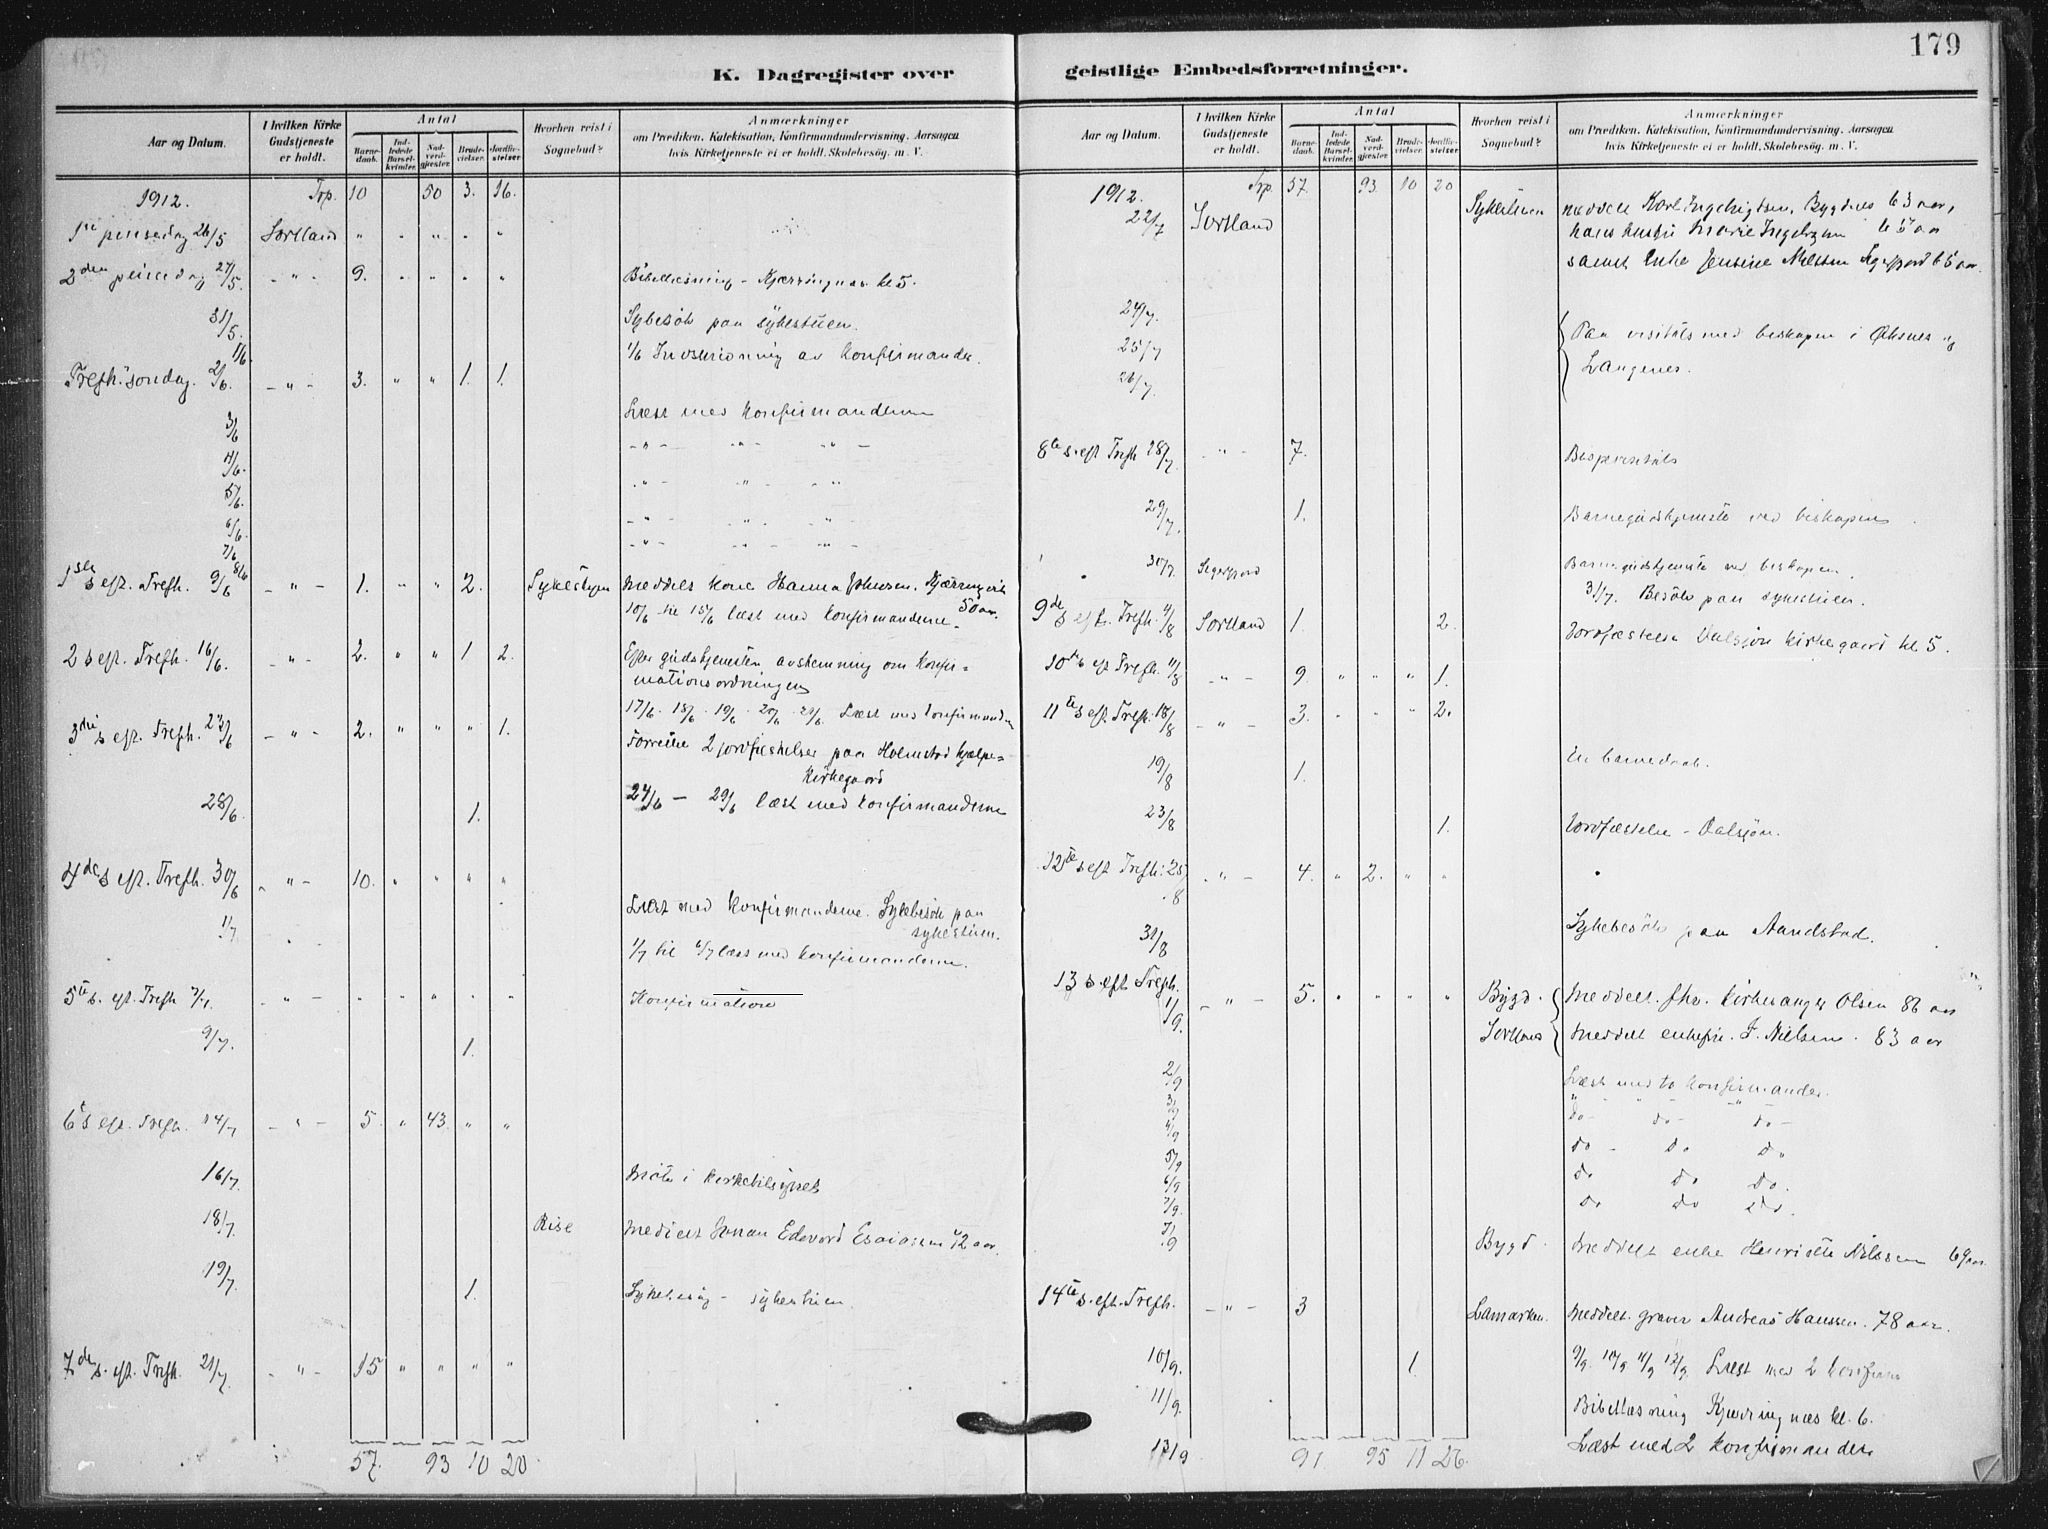 179
K. Dagregister over
Aar og Datum. I hvilken Kirke Gudstjeneste er holdt. Antal Barnedaab. Indledede Barselkvinder. Nadverdgjæster. Brudevielser. Jordfæstelser Hvorhen reist i Sognebud? Anmærkninger om Prædiken, Katekisation, Konfirmandundervisning, Aarsagen hvis Kirketjeneste ei er holdt, Skolebesøg. m. V.
1912. Trp. 10 50 3. 16.
1ste pinsedag 26/5 Sortland " " " " "
2den pinsedag 27/5. - " - 9. " " " " Bibellæsning - Kjærringnes kl 5.
31/5. Sykebesøk paa sykestuen.
1/6 1/6 Indskrivning av konfirmander.
Trefh. søndag. 2/6. - " - 3. " " 1. 1.
Læst med konfirmanderne
3/6 - " - - " - - " -
4/6. - " - - " - - " -
5/6. - " - - " - - " -
6/6. - " - - " - - " -
7/6 8/6
1ste s eft. Trefh. 9/6 - " - 1. " " 2. Sykestuen Meddelt kone Hanna Johnsen, Kjærringnes 50 aar.
10/6 til 15/6 læst med konfirmanderne.
2 s eft. Trefh. 16/6. - " - 2. " " 1 2. Efter gudstjenesten avstemning om konfirmationsordningen
17/6 . 18/6 . 19/6 . 20/6 . 21/6. Læst med konfirmander
3die s eft. Trefh. 23/6 - " - 2. " " " 1. Forrettet 2 jordfæstelser paa Holmstad hjælpekirkegaard
28/6. 1. 24/6 - 29/6 læst med konfirmanderne
4de s eft. Trefh. 30/6 - " - 10. " " " "
1/7 Læst med konfirmanderne. Sykebesøk paa sykestuen.
1/7 til 6/7 læst med konfirmanderne.
5te s. eft. Trefh 7/7. - " - " " " " " Konfirmation
9/7. 1.
6te s eft. Trefh. 14/7 - " - 5. " 43. " "
16/7 Møte i kirketilsynet
18/7 Rise Meddelt Johan Edvard Esaiassen 72 aar.
19/7 1. Sykebesøg - sykestuen.
7de s. eft. Trefh. 21/7 - " - 15 " " " "
57. 93 10 20
geistlige Embedsforretninger.
Aar og Datum. I hvilken Kirke Gudstjeneste er holdt. Antal Barnedaab. Indledede Barselkvinder. Nadverdgjæster. Brudevielser. Jordfæstelser. Hvorhen reist i Sognebud? Anmærkninger om Prædiken, Katekisation, Konfirmandundervisning, Aarsagen hvis Kirketjeneste ei er holdt, Skolebesøg. m. V.
1912. Trp. 57. 93 10 20
22/7 Sortland Sykestuen Meddelt Karl Ingebrigtsen, Bygdnes 63 aar,
hans hustru Marie Ingebrigtsen 65 aar
samt enke Jensine Nielsen Sigerfjord 65 aar.
24/7. Paa visitats med biskopen i Øksnes og
25/7 Langenes.
26/7.
8te s. eft Trefh 28/7. - " - 7. Bispevisitats
29/7. 1. Barnegudstjeneste ved biskopen.
30/7. Sigerfjord Barnegudstjeneste ved biskopen.
31/7. Besøk paa sykestuen.
9de s eft. Trefh. 4/8 Sortland 1. 2. Jordfæstelse Valsjøn kirkegaard kl 5.
10de s eft Trefh. 11/8 - " - 9. " " " 1.
11te s eft. Trefh. 18/8 - " - 3. " " " 2.
19/8 1. En barnedaab.
23/8 1. Jordfæstelse - Valsjøn.
12te s eft Trefh. 25/8 - " - 4. " 2. " "
31/8 Sykebesøk paa Aandstad.
13 s eft Trefh.
1/9. - " - 5. " " " " Bygd. Meddelt fhv. kirkesanger Olsen 86 aar
Sortland Meddelt enkefru. J. Nielsen. 83 aar
2/9 Læst med to konfirmander.
3/9 do - do - do -
4/9 do - do do
5/9 do do do.
6/9 do do do.
7/9.
7/9 Bygd. Meddelt enke Henriette Nilssen 69 aar.
14te s. eft. Trefh. - " - 3 Lamarken. Meddelt graver Andreas Hanssen. 78 aar.
10/9. 1 9/9 10/9 11/9 12/9 Læst med 2 konfirm
11/9. Bibellæsning Kjærringnes kl. 6.
13/9 Læst med 2 konfirmander
91. 95 11 26.